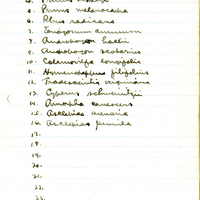 5. Prunus melanocarpa
6. Rhus radicans
7. Tonogonum annuum
8. Andropogon hallii
9. Andropogon scoparius
10. Calamovilfa longifolia
11. Hymenopappus filifolius
12. Tradescantia virginiana
13. Cyperus schweinitzii
14. Amorpha canescens
15. Asclepias arenaria
16. Asclepias pumila
17.
18.
19.
20.
21.
22.